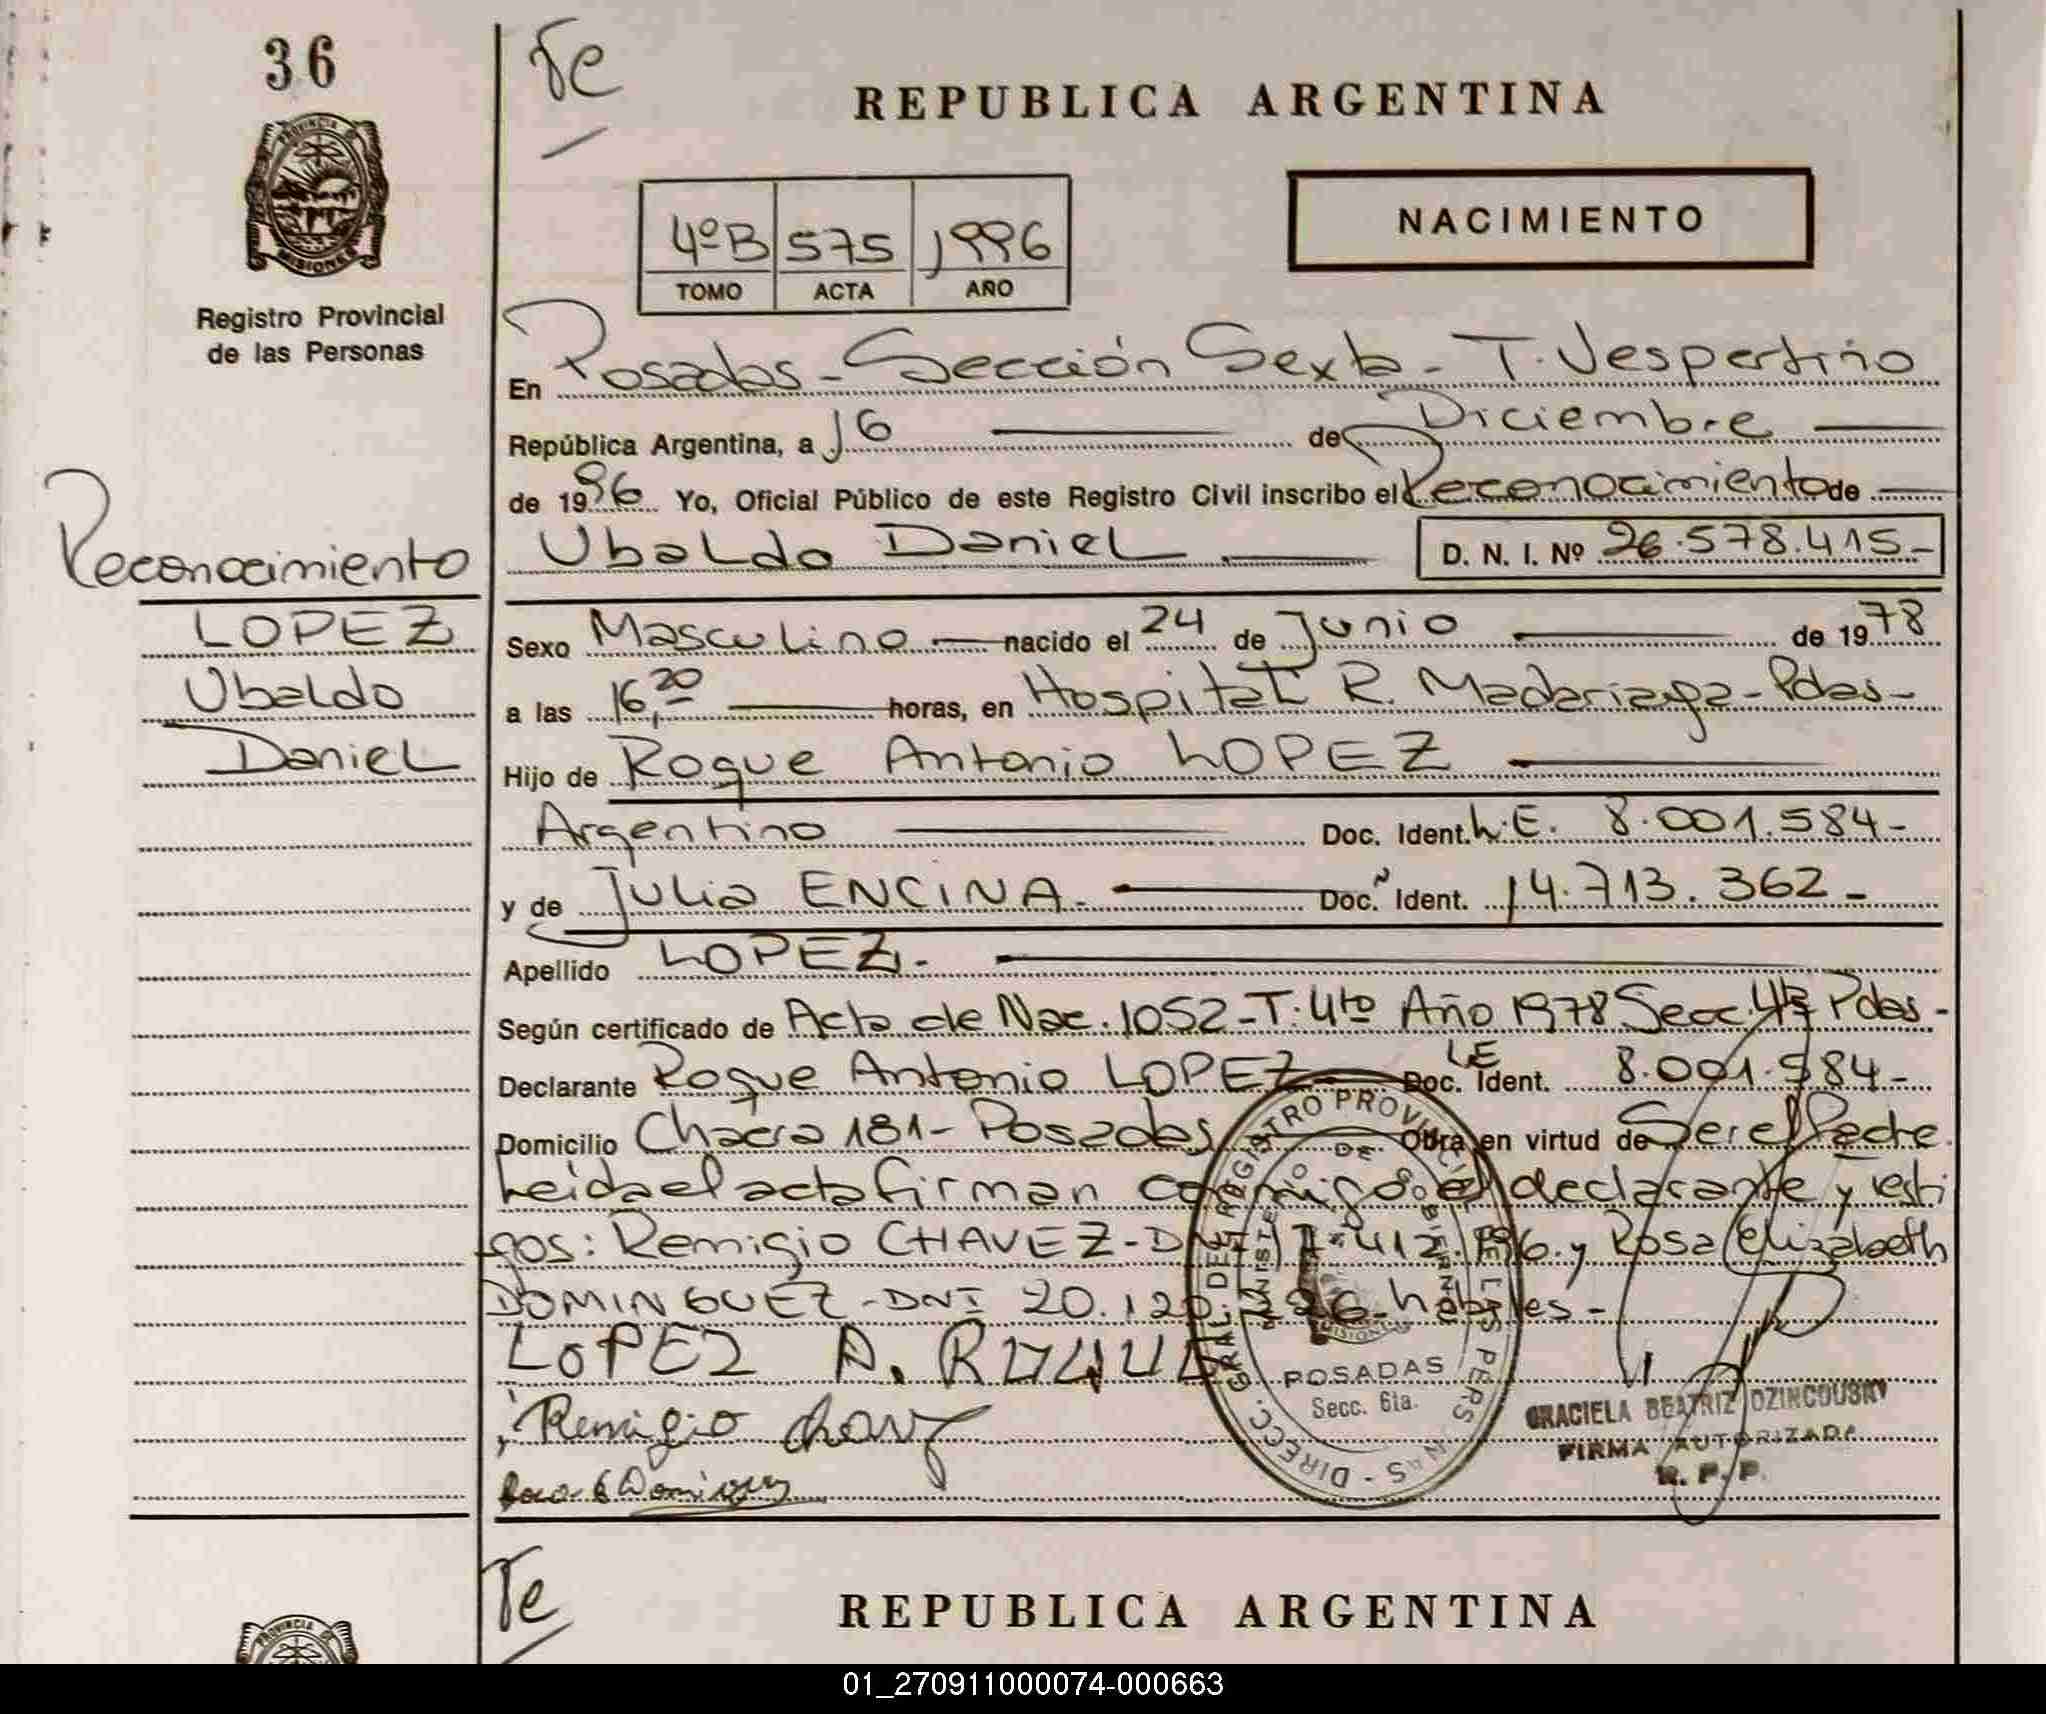 36
Te
REPUBLICA ARGENTINA
PROVINCIA DE
MISIONES
Registro Provincial
de las Personas
4ºB 575 1996
TOMO ACTA AÑO
NACIMIENTO
En Posadas - Sección Sexta - T. Vespertino
República Argentina, a 16 de Diciembre
de 1996 Yo, Oficial Público de este Registro Civil inscribo el Reconocimiento de
Ubaldo Daniel D. N. I. Nº 26.578.415-
Reconocimiento
LOPEZ
Ubaldo
Daniel
Sexo Masculino nacido el 24 de Junio de 1978
a las 16,20 horas, en Hospital R. Madariaga - Pdas-
Hijo de Roque Antonio LOPEZ
Argentino Doc. Ident. L.E. 8.001.584-
y de Julia ENCINA. Doc. Ident. 14.713.362-
Apellido LOPEZ.-
Según certificado de Acta de Nac. 1052-T: 4to Año 1978 Secc. 4ta Pdas-
Declarante Roque Antonio LOPEZ Doc. Ident. LE 8.001.584-
Domicilio Chacra 181- Posadas Obra en virtud de Ser el Padre
Leida el acta firman conmigo el declarante y testi
gos: Remigio CHAVEZ-DNI 412. y Rosa Elizabeth
DOMINGUEZ-DNI 20.120.226- habiles-
LOPEZ A.
Remigio Chavez
Rosa E Dominguez
DIRECC. GRAL. DEL REGISTRO PROVINCIAL DE LAS PERSONAS
MINISTERIO DE GOBIERNO
MISIONES
POSADAS
Secc. 6ta.
GRACIELA BEATRIZ DZINCOUSKY
FIRMA AUTORIZADA
R. P. P.
Te
REPUBLICA ARGENTINA
PROVINCIA DE
01_270911000074-000663